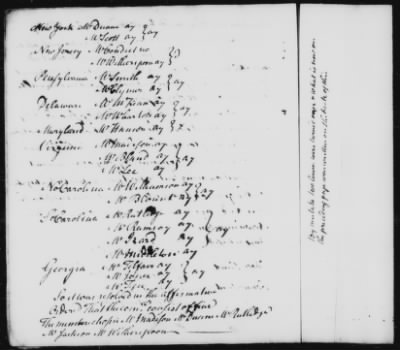 New York Mr Duane ay } ay
Mr Scott ay
New Jersey Mr Condict no
Mr Witherspoon ay
Pensylvania Mr Smith ay } ay
Mr Clymer ay
Delaware Mr McKean ay } ay
Mr Wharton ay
Maryland Mr Hanson ay
Virginia Mr Madison ay
Mr Bland ay } ay
Mr Lee ay
No Carolina Mr Williamson ay } ay
Mr Blount ay
So Carolina Mr Rutledge ay
Mr Ramsay ay } ay
Mr Izard ay
Mr Middleton ay
Georgia Mr Telfair ay
Mr Jones ay } ay
Mr Few ay
So it was resolved in the affirmative
Ordered That the Com consist of five
The members chosen Mr Madison Mr Mr Rutledge
Mr Jackson Mr Witherspoon
By mistake two leaves were turned over & what is next on
the preceding page was written on the back of this